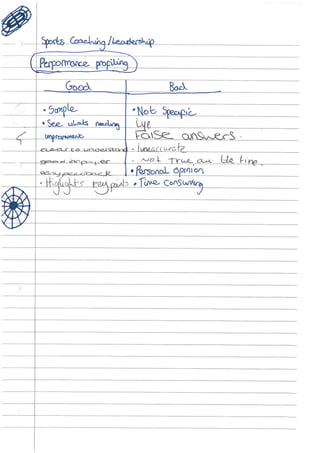 Sports Coaching/Leadership
Performance profiling
Good Bad
• Simple • Not Specific
• See whats needing Lye
improvement False answers.
clear to understand • Innaccurate
good on paper • Not true, on
easy feedback • Personal Opinion
• Highlights key points • Time Consuming